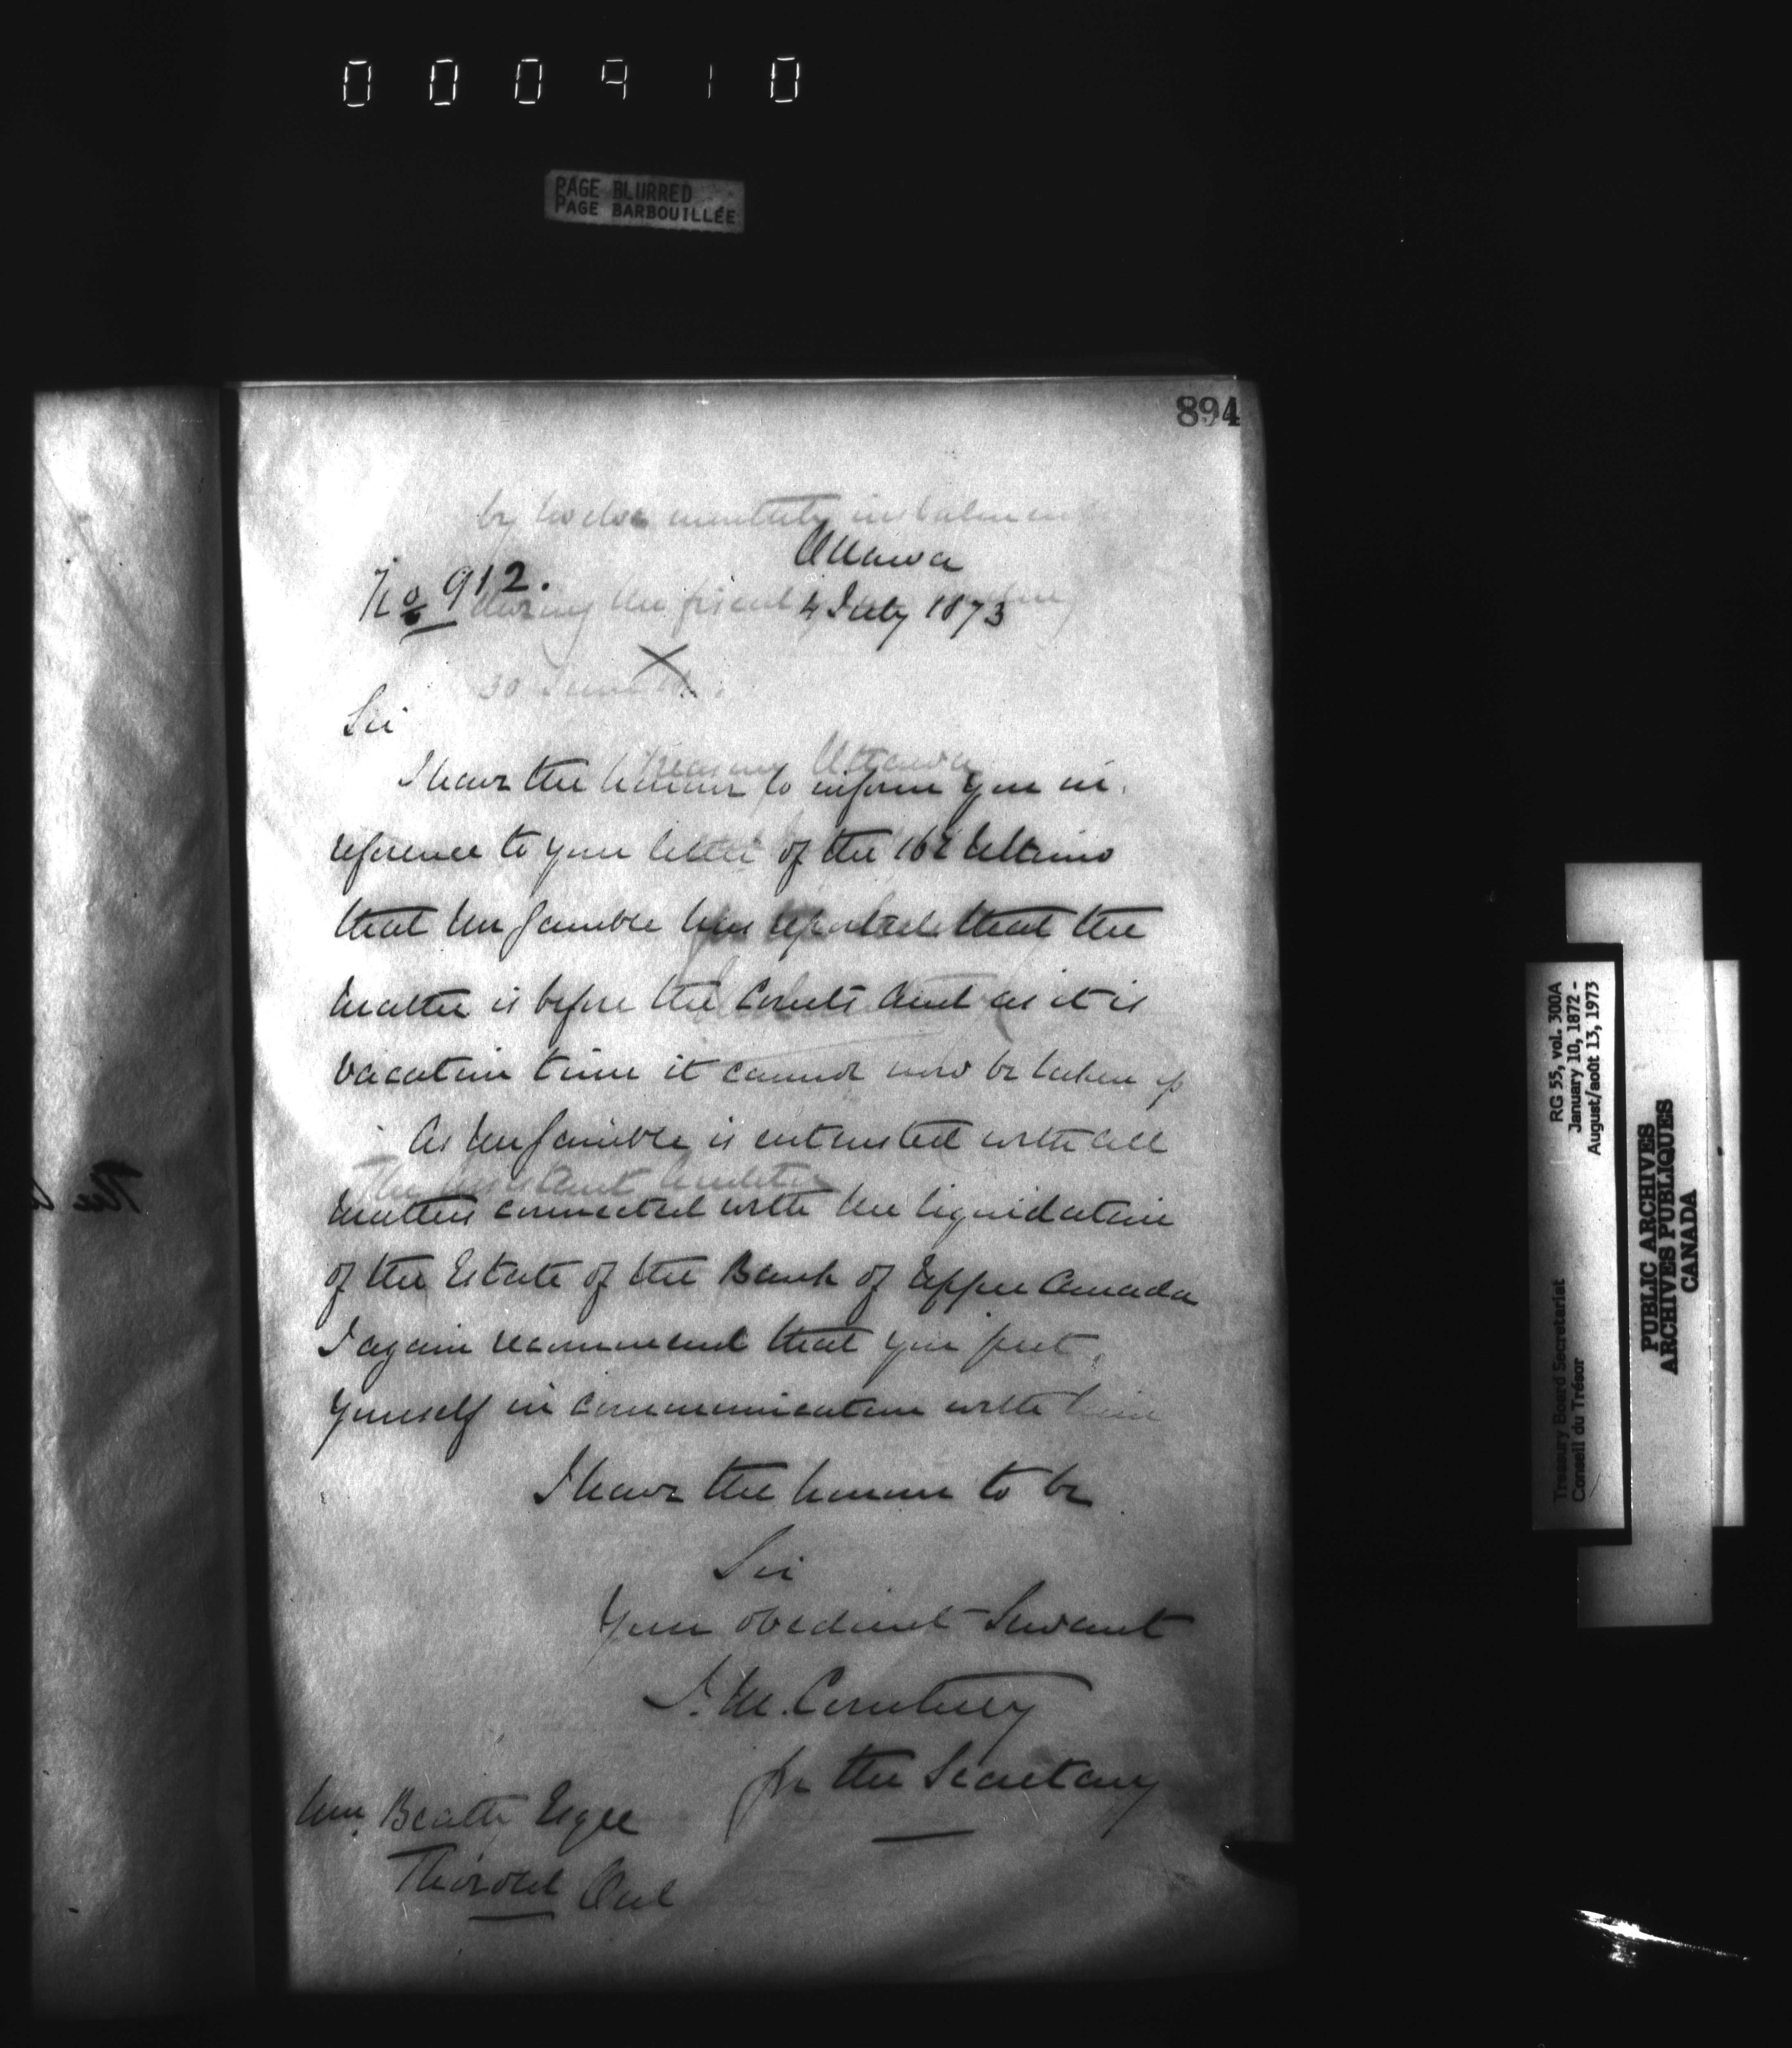 000910
PAGE BLURRED
PAGE BARBOUILLÉE
894
by twelve monthly instalments
Ottawa
No 912.
during the fiscal
4 July 1873
30 June
Sir
Treasury Ottawa
I have the honour to inform you in
reference to your letter of the 16th Ultimo
that Mr Gamble has reported that the
matter is before the Courts and as it is
vacation time it cannot now be taken up
As Mr Gamble is entrusted with all
The Assistant Auditor
matters connected with the liquidation
of the Estate of the Bank of Upper Canada
I again recommend that you put
yourself in communication with him
I have the honour to be
Sir
Your obedient Servant
J. M. Courtney
for the Secretary
Wm. Beatty Esqre
Thorold Ont
RG 55, vol. 300A
January 10, 1872 -
August/août 13, 1973
Treasury Board Secretariat
Conseil du Trésor
PUBLIC ARCHIVES
ARCHIVES PUBLIQUES
CANADA